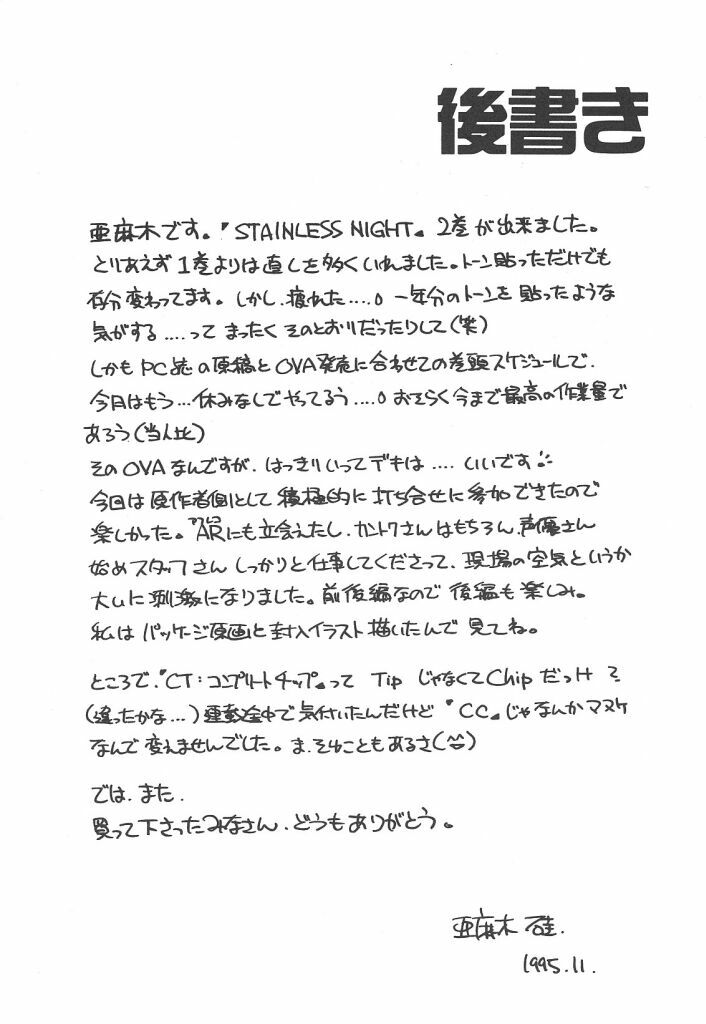 後書き
亜麻木です。『STAINLESS NIGHT』2巻が出来ました。
とりあえず1巻よりは直しを多くいれました。トーン貼っただけでも
存分変わってます。しかし、疲れた….。一年分のトーンを貼ったような
気がする….って まったくそのとおりだったりして(笑)
しかもPC誌の原稿とOVA発売に合わせての巻頭スケジュールで、
今月はもう…休みなしでやってるう….。おそらく今まで最高の作業量で
あろう(当人比)
そのOVAなんですが、はっきりいってデキは….いいです
今回は原作者側として積極的に打ち合せに参加できたので
楽しかった。ARにも立会えたし、カントクさんはもちろん、声優さん
始めスタッフさんしっかりと仕事してくださって、現場の空気というか
大いに刺激になりました。前後編なので後編も楽しみ。
私はパッケージ原画と封入イラスト描いたんで見てね。
ところで、『CT:コンプリートチップ』って TipじゃなくてChipだっけ?
(違ったかな…)運転途中で気付いたんだけど『CC』じゃなんかマヌケ
なんで変えませんでした。ま、そんなこともあるさ(^^)
では、また、
買って下さったみなさん、どうもありがとう。
亜麻木 硅.
1995.11.